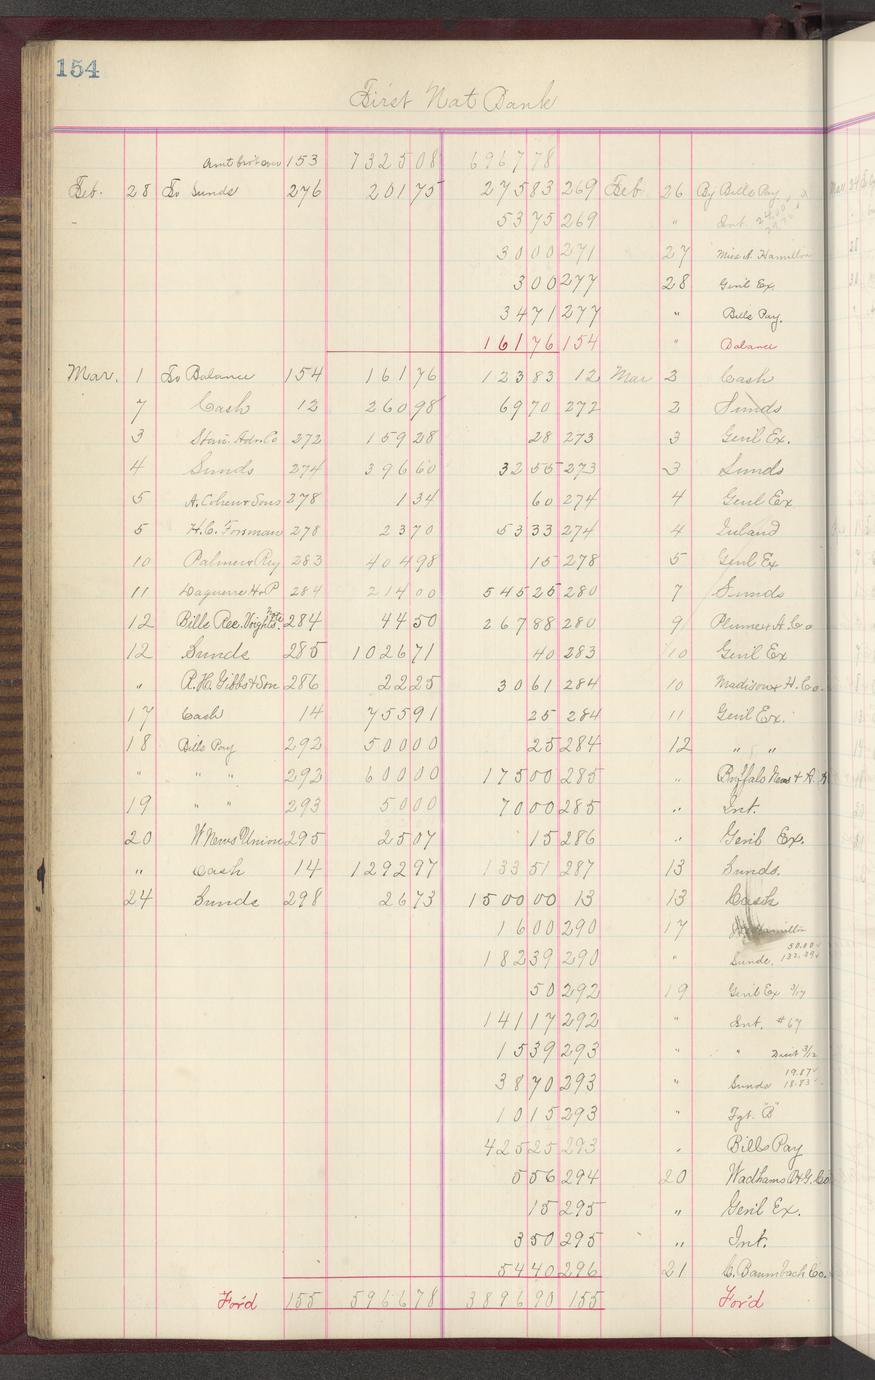 154
First Nat Bank
Amt bro't over 153 7325 08 6967 78
Feb. 28 To Sunds 276 201 75 275 83 269 Feb 26 By Bills Pay
53 75 269 " Int.
30 00 271 27 Miss A. Hamilton
3 00 277 28 Genl Ex.
34 71 277 " Bills Pay.
161 76 154 " Balance
Mar. 1 To Balance 154 161 76 123 83 12 Mar 2 Cash
7 Cash 12 260 98 69 70 272 2 Sunds
3 Adv. Co 272 159 28 28 273 3 Genl Ex.
4 Sunds 274 396 60 32 55 273 3 Sunds
5 A. Cohen & Sons 278 1 34 60 274 4 Genl Ex
5 H.C. Forsman 278 23 70 53 33 274 4 Inland
10 Palmer & Rey 283 404 98 15 278 5 Genl Ex
11 Daguerre H & P 284 214 00 545 25 280 7 Sunds
12 Bills Rec. Wright's Note 284 44 50 267 88 280 9 Plume & A. Co
12 Sunds 285 1026 71 40 283 10 Genl Ex
" R.H. Gibbs & Son 286 22 25 30 61 284 10 Madison & H. Co.
17 Cash 14 755 91 25 284 11 Genl Ex.
18 Bills Pay 292 500 00 25 284 12 " "
" " " 292 600 00 175 00 285 " Buffalo News & A.
19 " " 293 50 00 70 00 285 " Int.
20 W News Union 295 25 07 15 286 " Genl Ex.
" Cash 14 1292 97 133 51 287 13 Sunds.
24 Sunds 298 26 73 1500 00 13 13 Cash
16 00 290 17 Hamilton
182 39 290 " Sunds. 50.00 132.39
50 292 19 Genl Ex 3/17
141 17 292 " Int. #67
15 39 293 " " Disct 3/12
38 70 293 " Sunds 19.87 18.83
10 15 293 " Fgt. "B"
425 25 293 " Bills Pay
5 56 294 20 Wadhams O & G. Co
15 295 " Genl Ex.
3 50 295 " Int.
54 40 296 21 C. Baumbach Co.
For'd 155 5966 78 3896 90 155 For'd